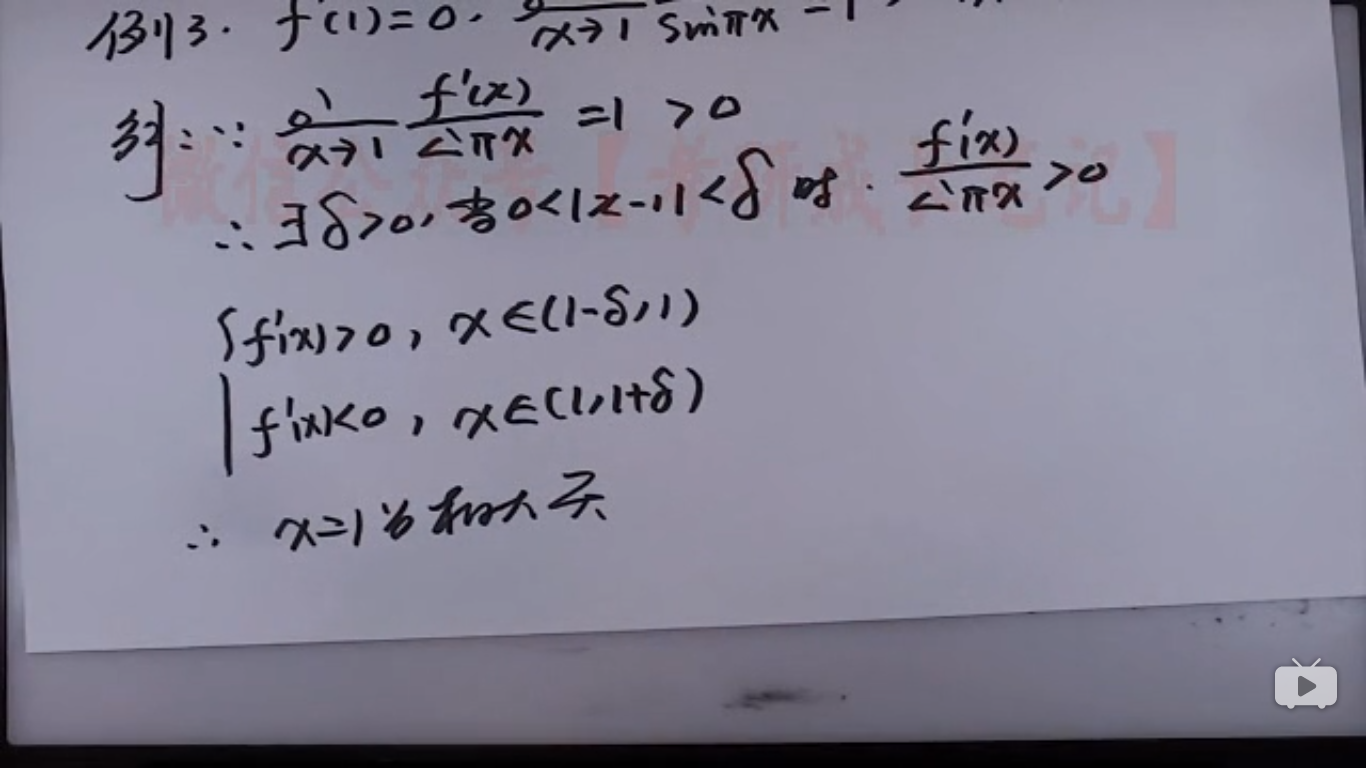 例3. f'(1)=0. x→1 sinπx = 1,
解: ∵ lim x→1 f'(x)/sinπx =1 >0
∴ ∃ δ>0, 当0<|x-1|<δ 时. f'(x)/sinπx >0
{ f'(x)>0, x∈(1-δ,1)
f'(x)<0, x∈(1,1+δ)
∴ x=1为极大点